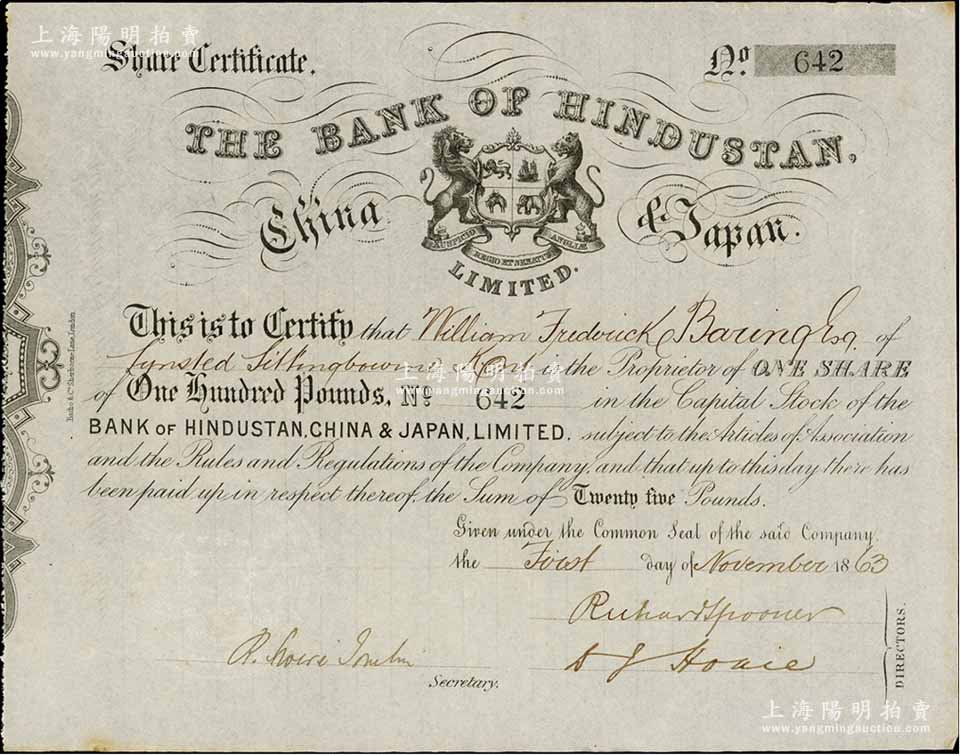 上海陽明拍賣
www.yangmingauction.com
Share Certificate.
No. 642
THE BANK OF HINDUSTAN,
China & Japan.
AUSPICIO REGIO ET SENATUS ANGLIÆ
LIMITED.
This is to Certify that William Fredrick Baring Esq. of
Lynsted Sittingbourne Kent is the Proprietor of ONE SHARE
of One Hundred Pounds, No 642 in the Capital Stock of the
BANK OF HINDUSTAN, CHINA & JAPAN, LIMITED, subject to the Articles of Association
and the Rules and Regulations of the Company, and that up to this day there has
been paid up in respect thereof, the Sum of Twenty five Pounds.
Given under the Common Seal of the said Company,
the First day of November 1863
Richard Spooner
Secretary.
DIRECTORS.
上海陽明拍賣
www.yangmingauction.com
上海陽明拍賣
www.yangmingauction.com